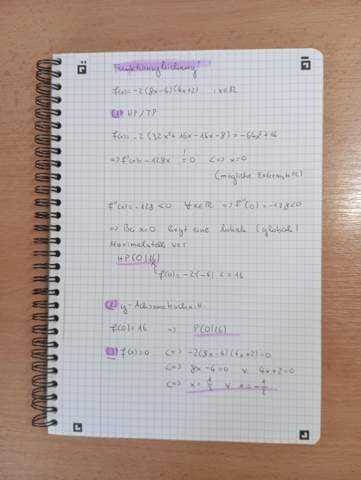 Funktionsgleichung:
f(x) = -2(8x-4)(4x+2) ; x∈ℝ
1) HP/TP
f(x) = -2(32x²+16x-16x-8) = -64x²+16
=> f'(x) = -128x = 0 <=> x=0
!
(mögliche Extremstelle)
f''(x) = -128 < 0 ∀x∈ℝ => f''(0) = -128 < 0
=> Bei x=0 liegt eine lokale (globale)
Maximalstelle vor
HP(0|16)
f(0) = -2·(-4)·2 = 16
2) y-Achsenabschnitt:
f(0) = 16 => P(0|16)
3) f(x) = 0 <=> -2(8x-4)(4x+2) = 0
<=> 8x-4=0 ∨ 4x+2=0
<=> x = 1/2 ∨ x = -1/2